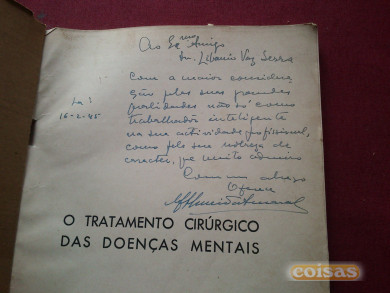 Ao Ex.mo Amigo
Sr. Libanio Vaz Serra
Com a maior considera-
ção pelas suas grandes
qualidades não só como
trabalhador inteligente
na sua actividade profissional,
como pela sua nobreza de
caracter, que muito admiro
Com um abraço
Oferece
16-2-45
O TRATAMENTO CIRÚRGICO
DAS DOENÇAS MENTAIS
coisas